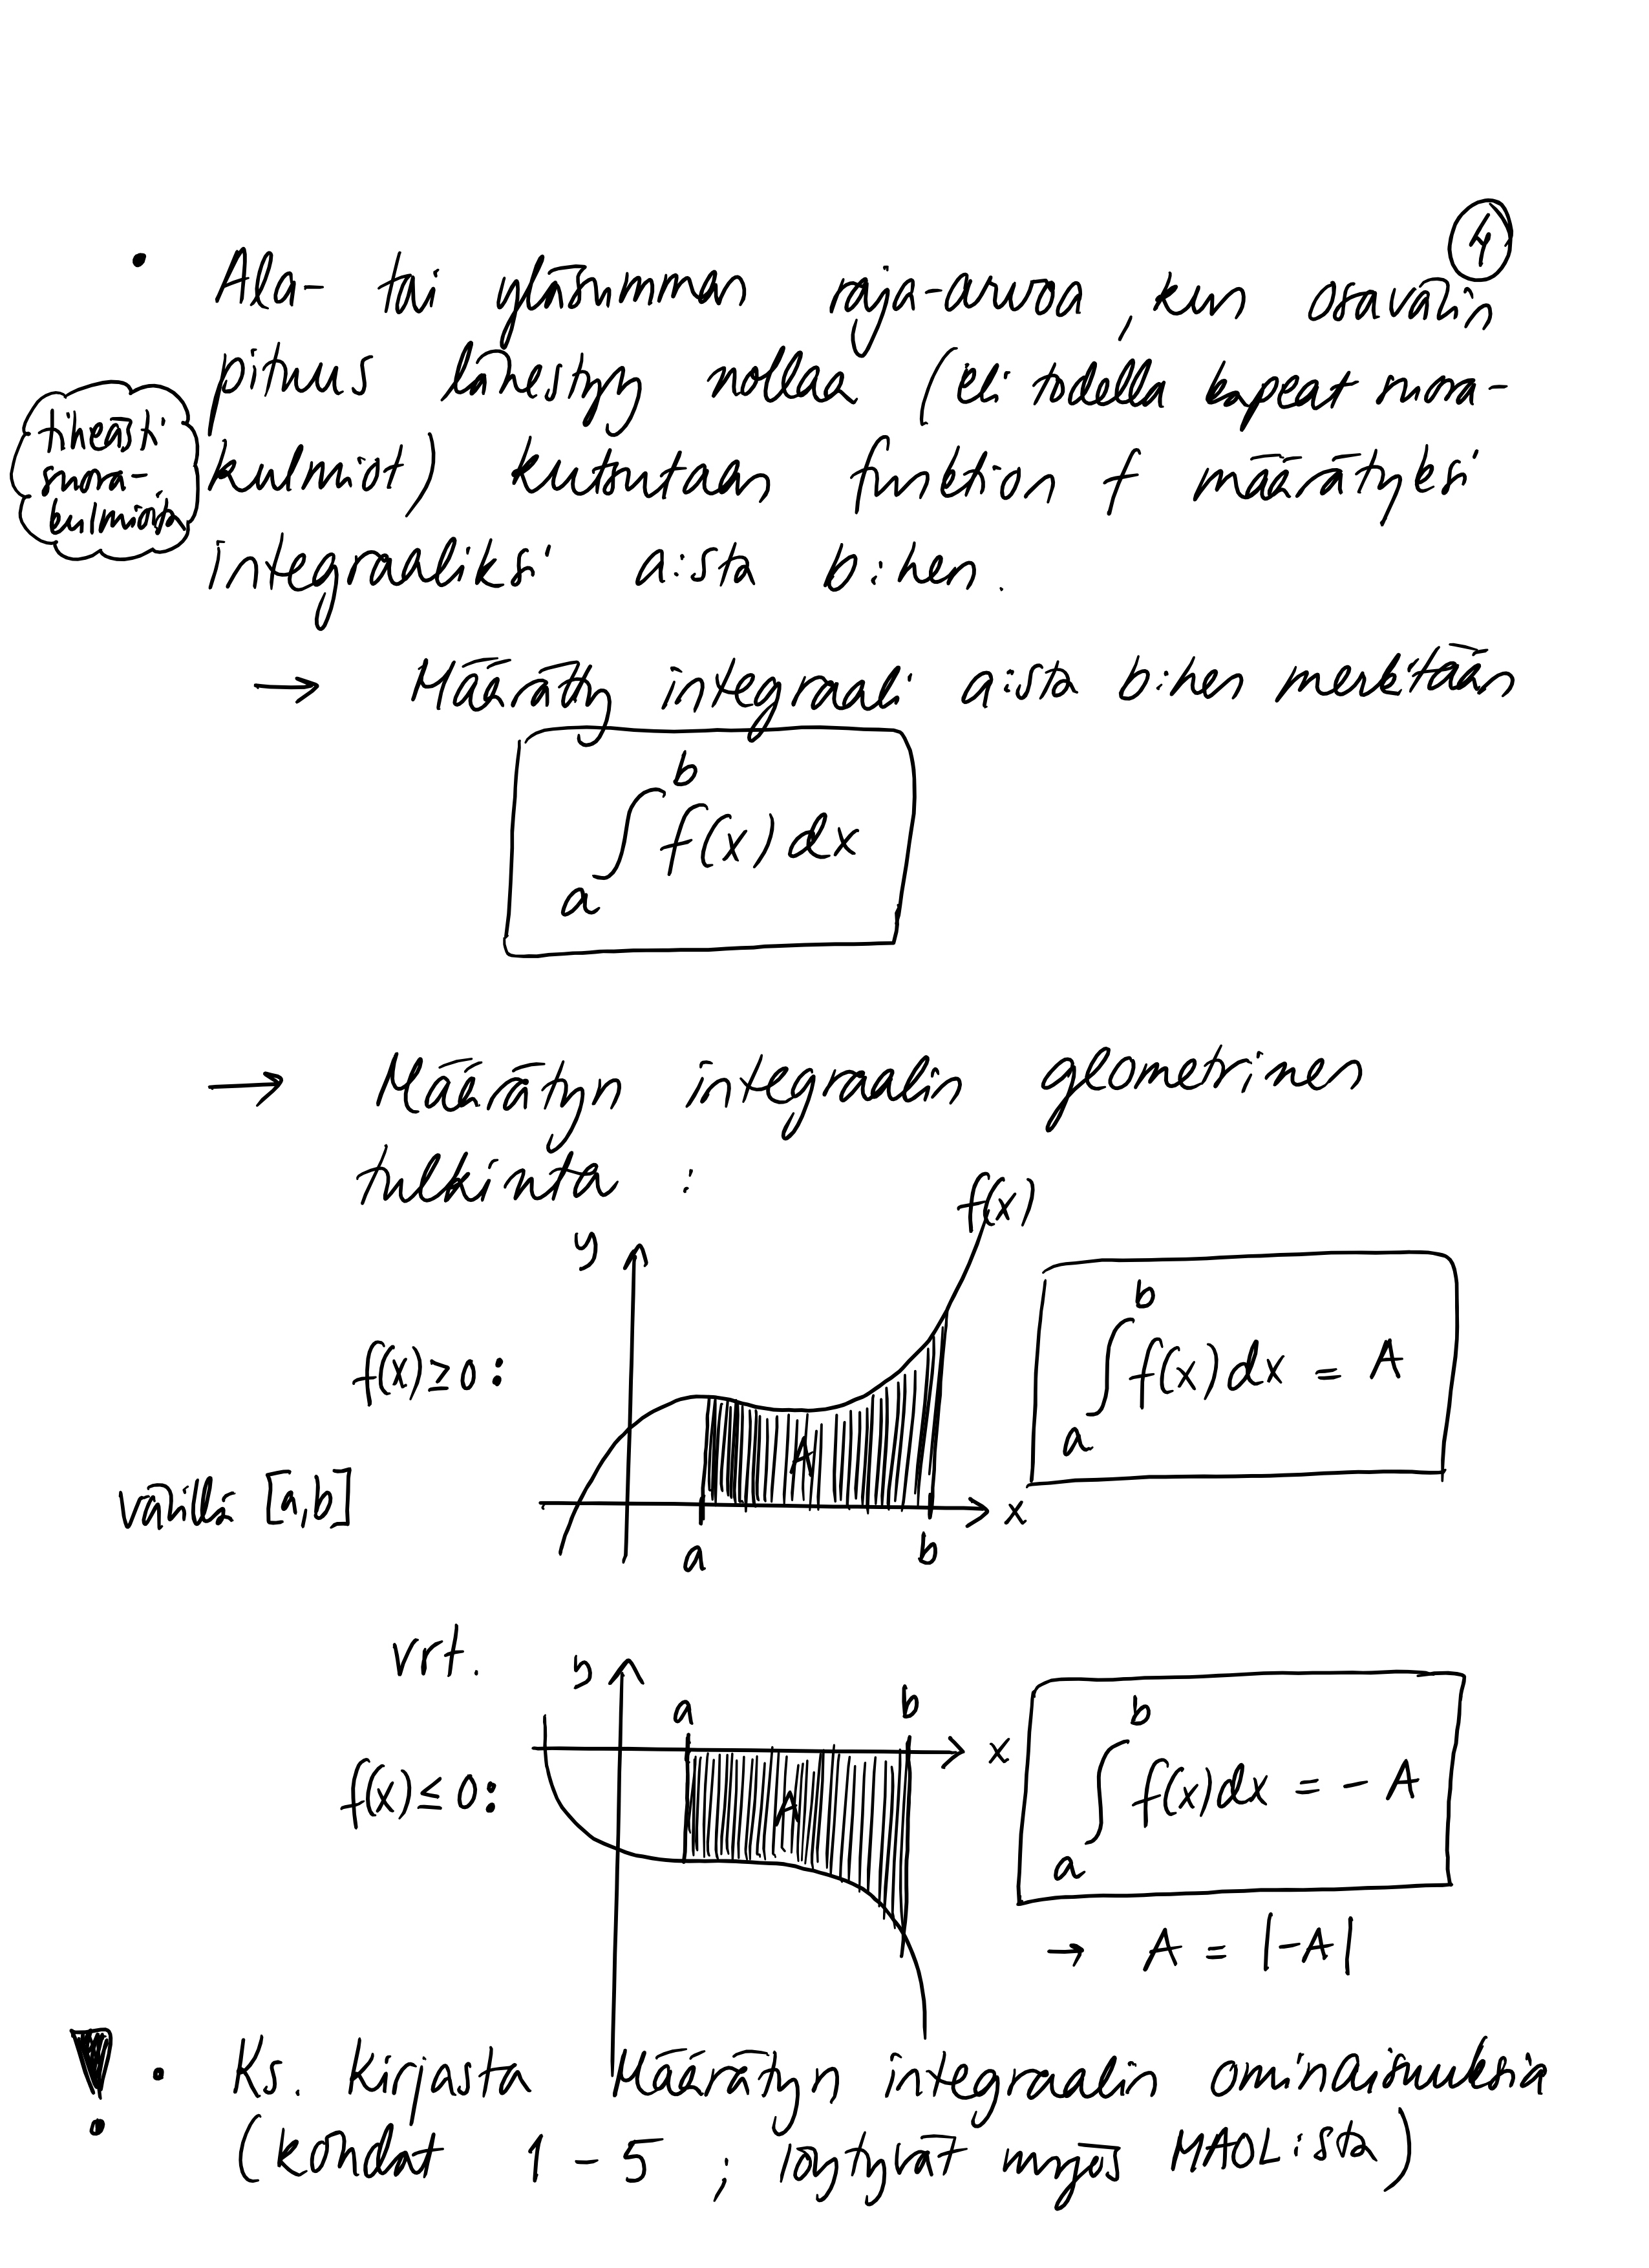 4
• Ala- tai yläsumman raja-arvoa, kun osavälin
pituus lähestyy nollaa (eli todella kapeat suora-
kulmiot) kutsutaan funktion f määrätyksi
integraaliksi a:sta b:hen.
tiheästi
suora-
kulmioita
→ Määrätty integraali a:sta b:hen merkitään
b
∫ f(x) dx
a
→ Määrätyn integraalin geometrinen
tulkinta :
f(x)
y
f(x) ≥ 0 :
A
välillä [a,b]
x
a b
b
∫ f(x) dx = A
a
vrt.
y
a b
x
f(x) ≤ 0 :
A
b
∫ f(x) dx = - A
a
→ A = |-A|
! • Ks. kirjasta Määrätyn integraalin ominaisuuksia
(kohdat 1 - 5 ; löytyvät myös MAOL:ista)